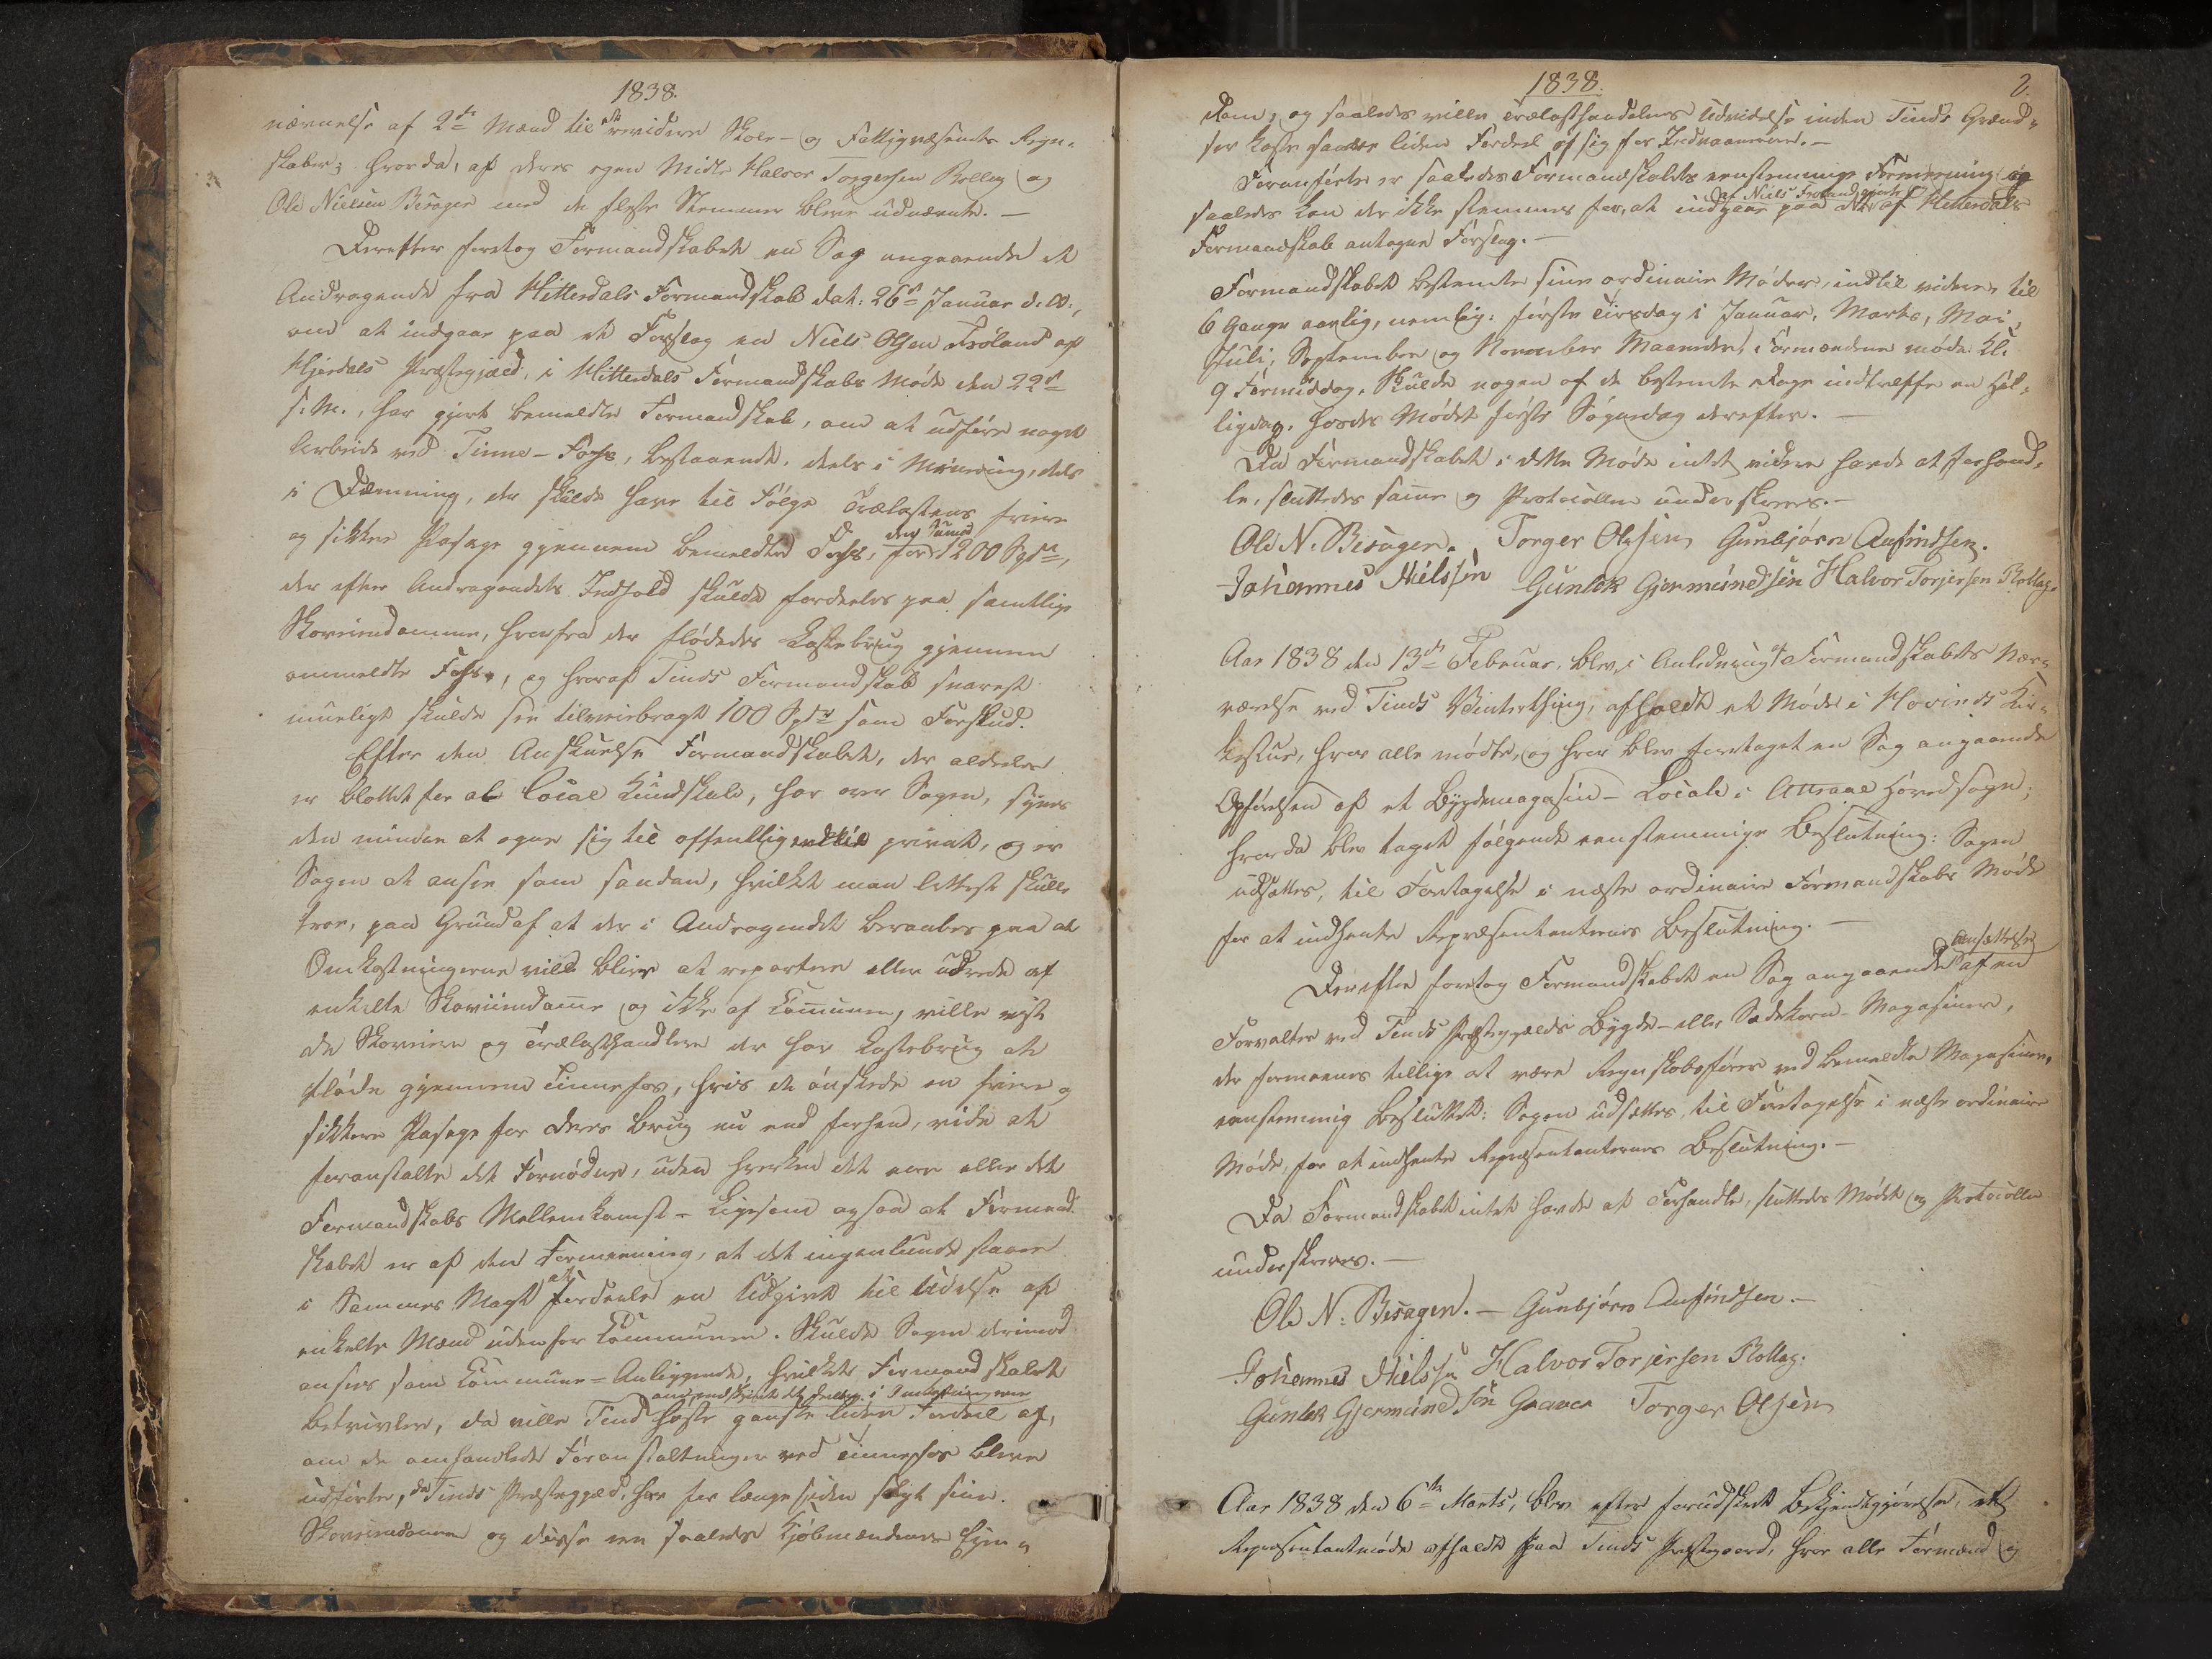 1838.
nævnelse af 2de Mænd til at revidere Skole- og Fattigvæsenets Regn-
skaber; hvorda, af deres egen Midte Halvor Torgersen Rollag og
Ole Nielsen Bisager med de fleste Stemmer bleve udnævnte. —
Derefter foretog Formandskabet en Sag angaaende et
Andragende fra Hitterdals Formandskab dat: 26de Januar d. A.,
om at indgaae paa et Forslag en Niels Olsen Froland af
Hjerdals Præstegjæld, i Hitterdals Formandskabs Møde den 22de
s. M., har gjort bemeldte Formandskab, om at udføre noget
Arbeide ved Tinne-Foss, bestaaende, deels i Minering, dels
i Dæmning, der skulde have til Følge Trælastens friere
og sikkre Passage gjennem bemeldte Foss, for den Sum 1200 Spd,
der efter Andragendets Indhold skulde fordeeles paa samtlige
Skoveiendomme, hvorfra der flødedes Lastebrug gjennem
ommeldte Foss, og hvoraf Tinds Formandskab snarest
mueligt skulde see tilveiebragt 100 Spdr som Forskud.
Efter den Anskuelse Formandskabet, der aldeles
er blottet for al Local Kundskab, har over Sagen, synes
den mindre at egne sig til offentlig end til privat, og er
Sagen at ansee som saadan, hvilket man lettest skulle
troe, paa Grund af at der i Andragendet beraabes paa at
Omkostningerne ville blive at repartere eller udrede af
enkelte Skoveiendomme og ikke af Communen, ville vist
de Skoveiere og Trælasthandlere der har Lastebrug at
fløde gjennem Tinnefos, hvis de ønskede en friere og
sikkere Passage for deres Brug nu end forhen, vide at
foranstalte det Fornødne, uden hverken det ene eller det
Formandskabs Mellemkomst – Ligesom ogsaa at Formand-
skabet er af den Formening, at det ingenlunde staaer
i Sammes Magt at fordeele en Udgivt til Udelse af
enkelte Mænd udenfor Communen. Skulde Sagen derimod
ansees som Commune-Anliggende, hvilket Formandskabet
betvivler, da ville Tind høste ganske liden Fordeel af,
om de omhandlede Foranstaltninger ved Tinnefos bleve
udførte, da Tinds Præstegjæld, har for længe siden solgt sine
Skoveiendomme og disse ere saaledes Kjøbmændenes Eien-
1838.
2.
dom, og saaledes ville Trælasthandelens Udvidelse inden Tinds Grænd-
ser kaste liden Fordeel af sig for Indvaanerne. —
Foranførte er saaledes Formandskabets eenstemmige Formening og
af Niels Froland gjorte
saaledes kan der ikke stemmes for, at indgaae paa det af Hitterdals
Formandskab antagne Forslag. —
Formandskabet bestemte sine ordinaire Møder, indtil videre, til
6 Gange aarlig, nemlig: første Tirsdag i Januar, Marts, Mai,
Juli, September og November Maaneder, Formændene møde Kl.
9 Formiddag. Skulde nogen af de bestemte Dage indtræffe en Hel-
ligdag, holdes Mødet første Søgnedag derefter. —
Da Formandskabet i dette Møde intet videre havde at forhand-
le, sluttedes samme og Protocollen underskreves. —
Ole N. Bisagen. Torger Olssen Gunbjørn Anfindsen.
Johannes Nielssen Gunlek Gjermundsen Halvor Torjersen Rollag.
Aar 1838 den 13de Februar, blev, i Anledning af Formandskabets Nær-
værelse ved Tinds Vinterthing, afholdt et Møde i Hovinds Kir-
kestue, hvor alle mødte, og hvor blev foretaget en Sag angaaende
Opførelsen af et Bygdemagasin-Locale i Attraae Hovedsogn;
hvorda blev taget følgende eenstemmige Beslutning: Sagen
udsættes, til Foretagelse i næste ordinaire Formandskabs Møde
for at indhente Repræsentanternes Beslutning. —
Derefter foretog Formandskabet en Sag angaaende Ansættelse af en
Forvalter ved Tinds Præstegjælds Bygde- eller Sædekorn-Magasiner,
der formeenes tillige at være Regnskabsfører ved bemeldte Magasiner,
eenstemmig besluttet: Sagen udsættes, til Foretagelse i næste ordinaire
Møde, for at indhente Repræsentanternes Beslutning. —
Da Formandskabet intet havde at Forhandle, sluttedes Mødet og Protocollen
underskreves. —
Ole N: Bisagen. — Gunbjørn Anfindsen. —
Johannes Nielssen Halvor Torjersen Rollag.
Gunlek Gjermundsen Graver Torger Olsen
Aar 1838 den 6te Marts, blev efter forudskeet Bekjendtgjørelse, et
Repræsentantmøde afholdt paa Tinds Præstegaard, hvor alle Formænd og